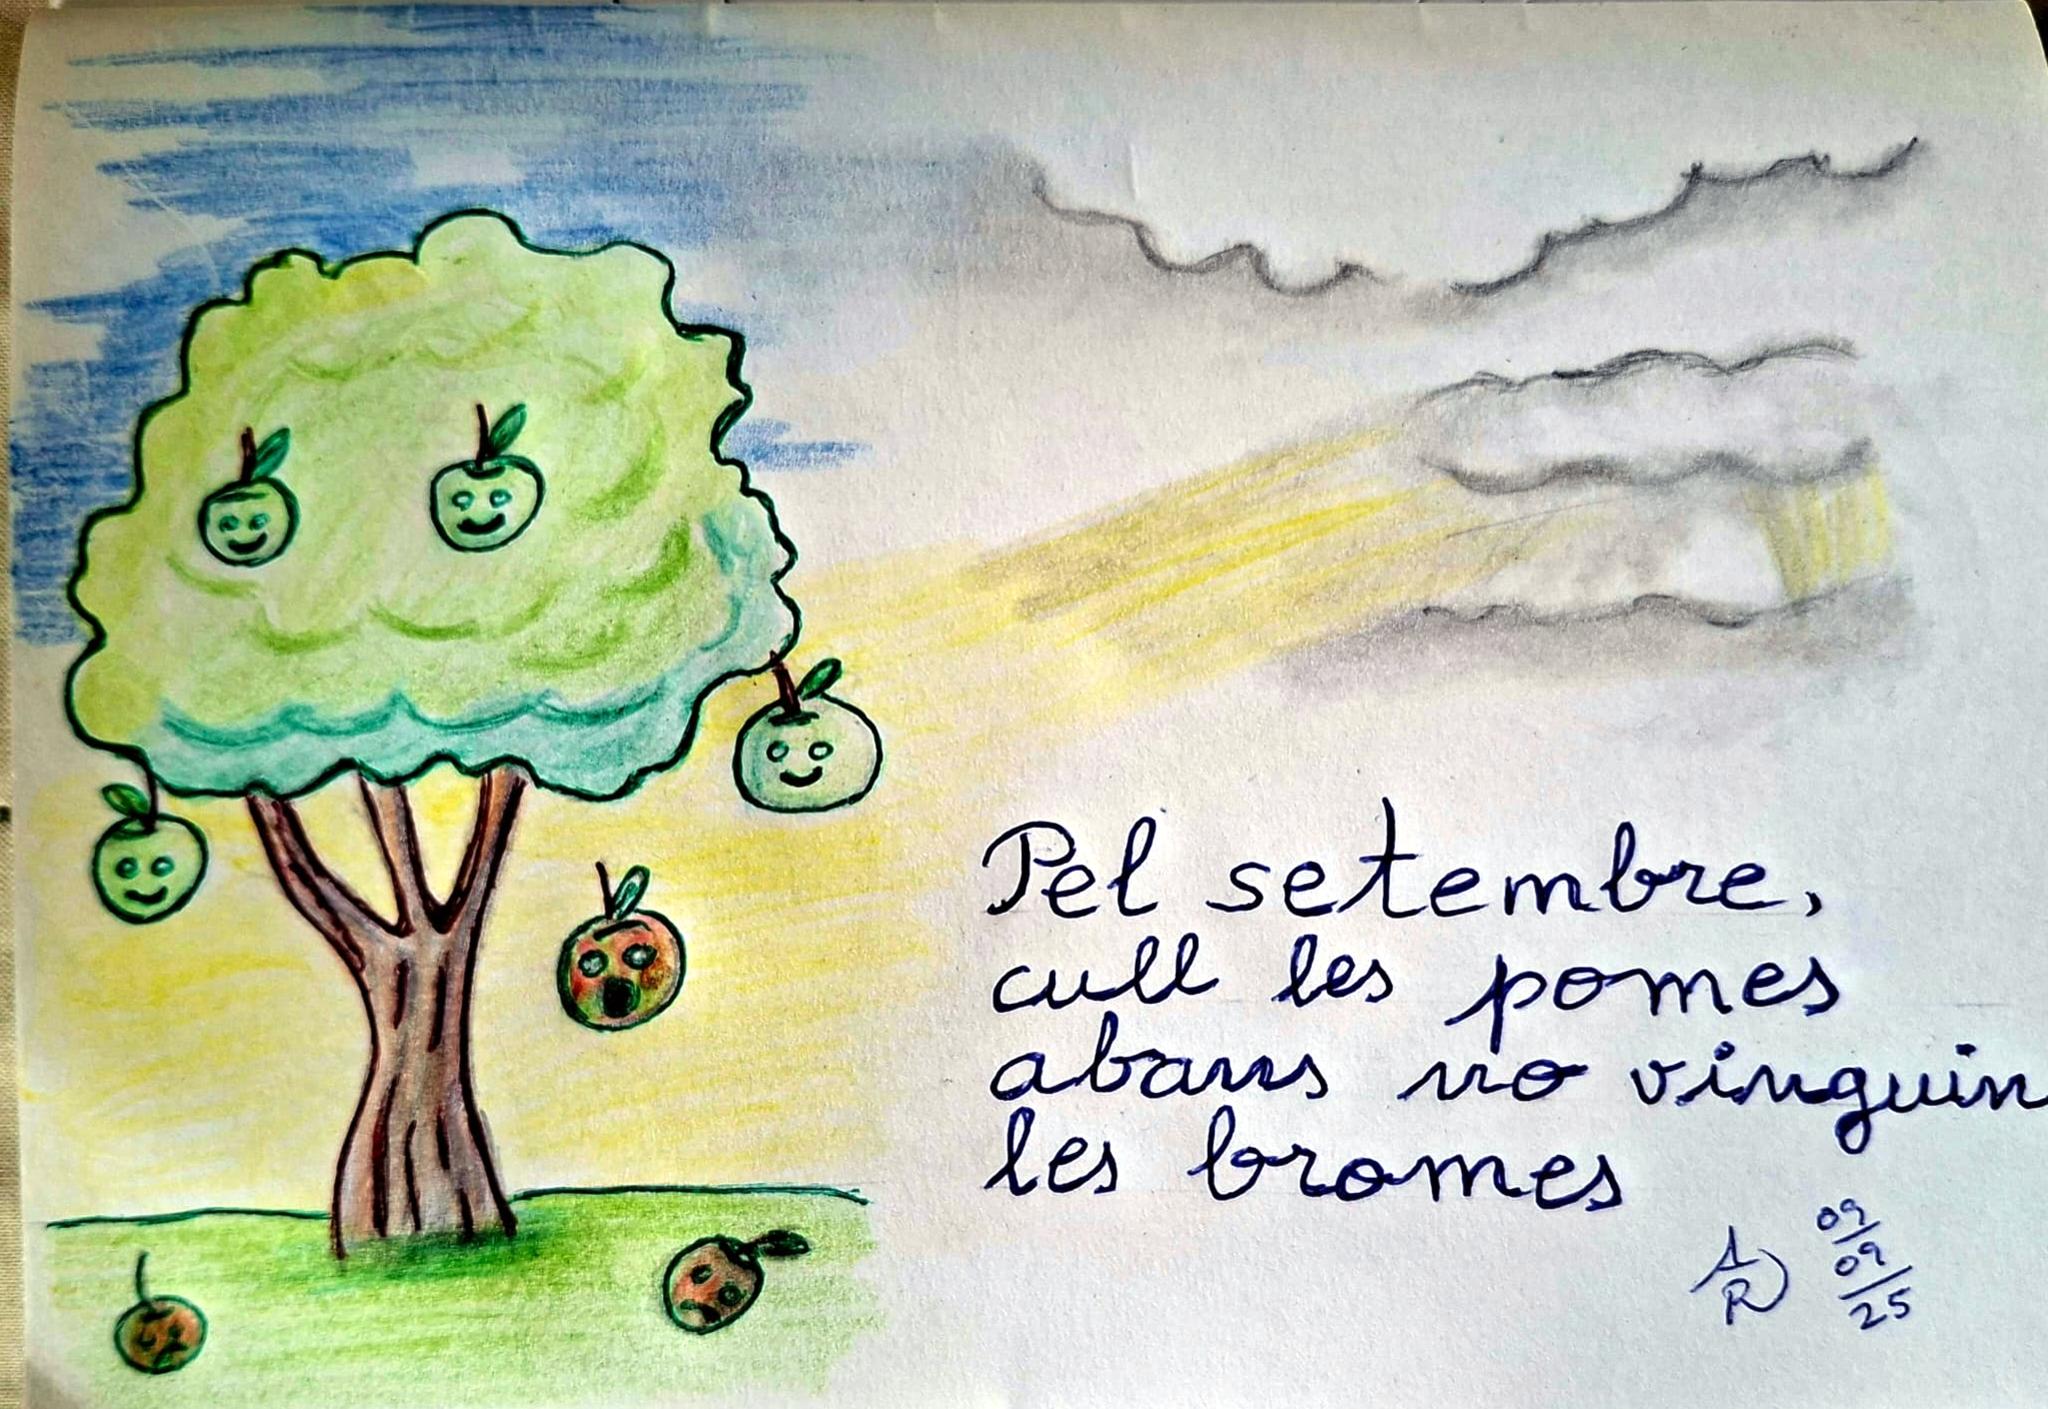 Pel setembre,
cull les pomes
abans no vinguin
les bromes
AR
09/
09/
25